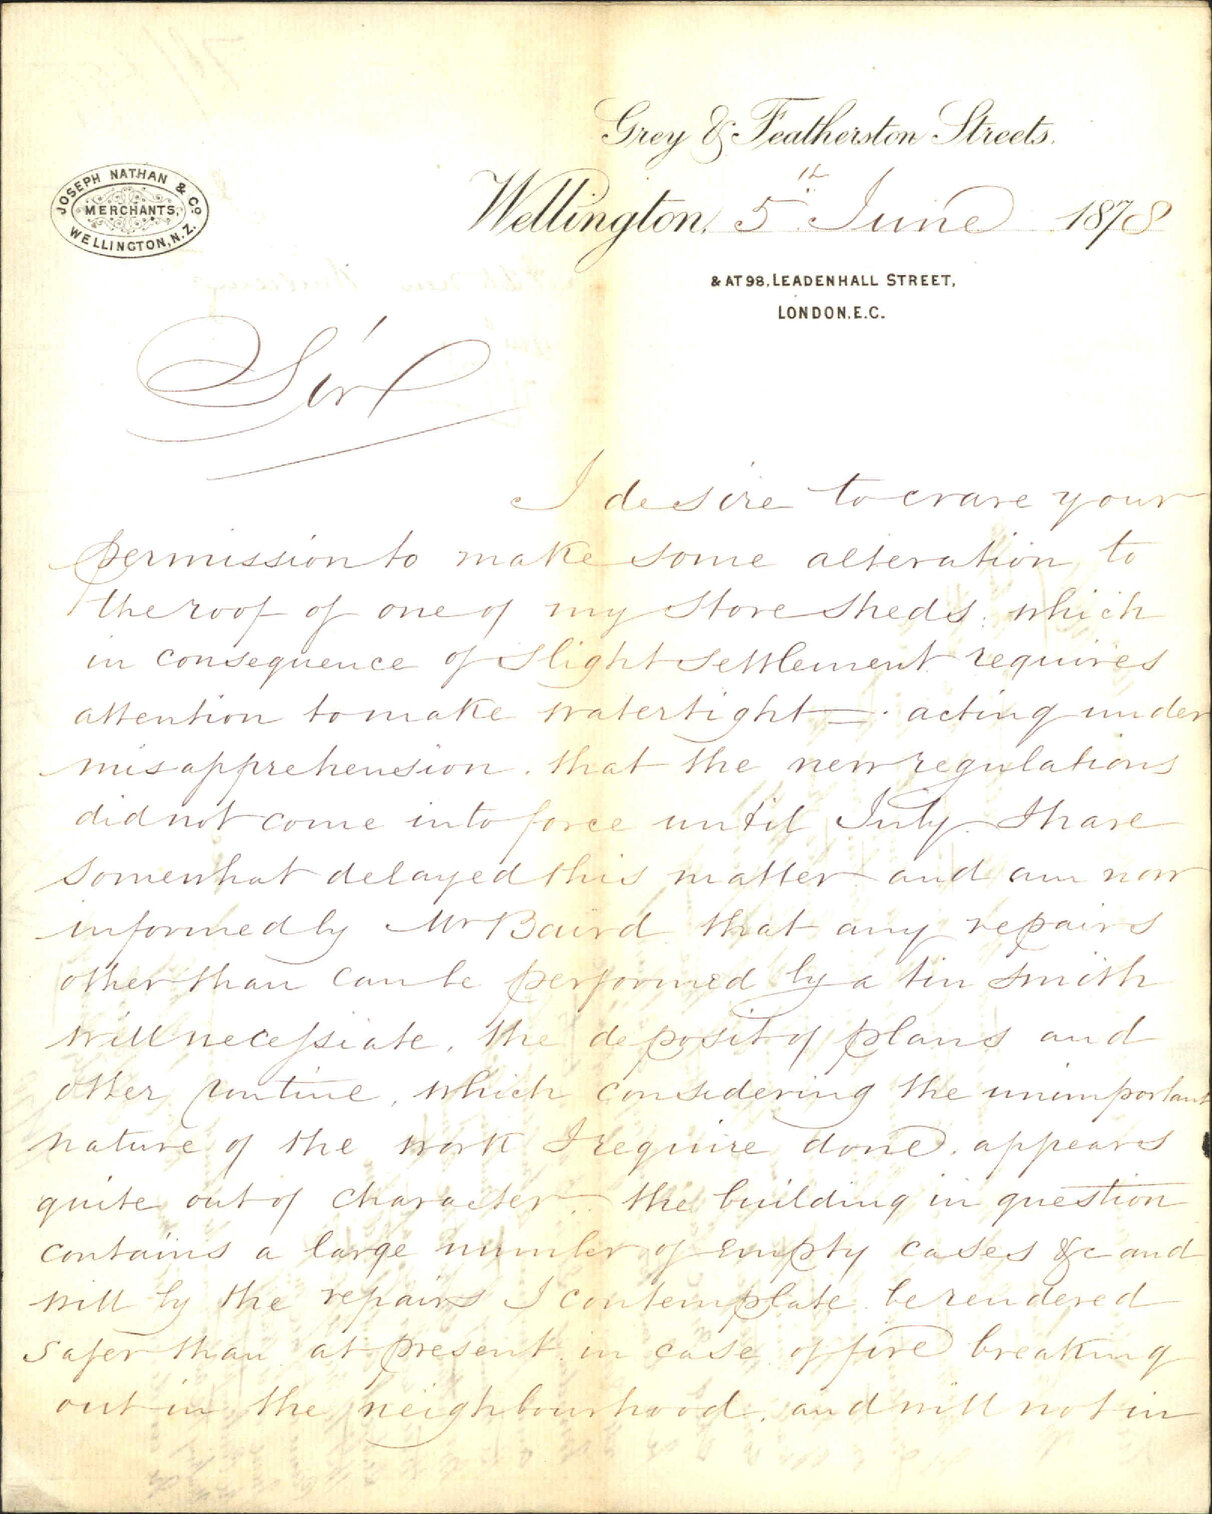 Grey & Featherston Streets.
JOSEPH NATHAN & Co
MERCHANTS,
WELLINGTON, N.Z.
Wellington, 5th June 1878
& AT 98, LEADENHALL STREET,
LONDON. E.C.
Sir
I desire to crave your
permission to make some alteration to
the roof of one of my Store Sheds. which
in consequence of slight settlement requires
attention to make watertight =. acting under
misapprehension. that the new regulations
did not come into force until July. I have
somewhat delayed this matter and am now
informed by Mr Baird that any repairs
other than can be performed by a tin smith
will necessiate, the deposit of plans and
other routine, which considering the unimportant
nature of the work I require done. appears
quite out of character. the building in question
contains a large number of empty cases &c and
will by the repairs I contemplate be rendered
safer than at present in case of fire breaking
out in the neighbourhood. and will not in